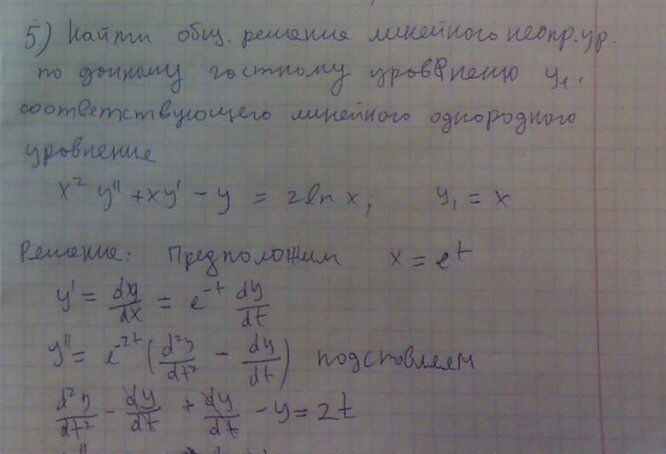 5) Найти общ. решение линейного неопр. ур.
по данному частному уроввнению y₁,
соответствующего линейного однородного
уровнение
x² y" + xy' - y = 2 ln x, y₁ = x
Решение: Предположим x = e^t
y' = dy/dx = e^-t dy/dt
y" = e^-2t (d²y/dt² - dy/dt) подставляем
d²y/dt² - dy/dt + dy/dt - y = 2t